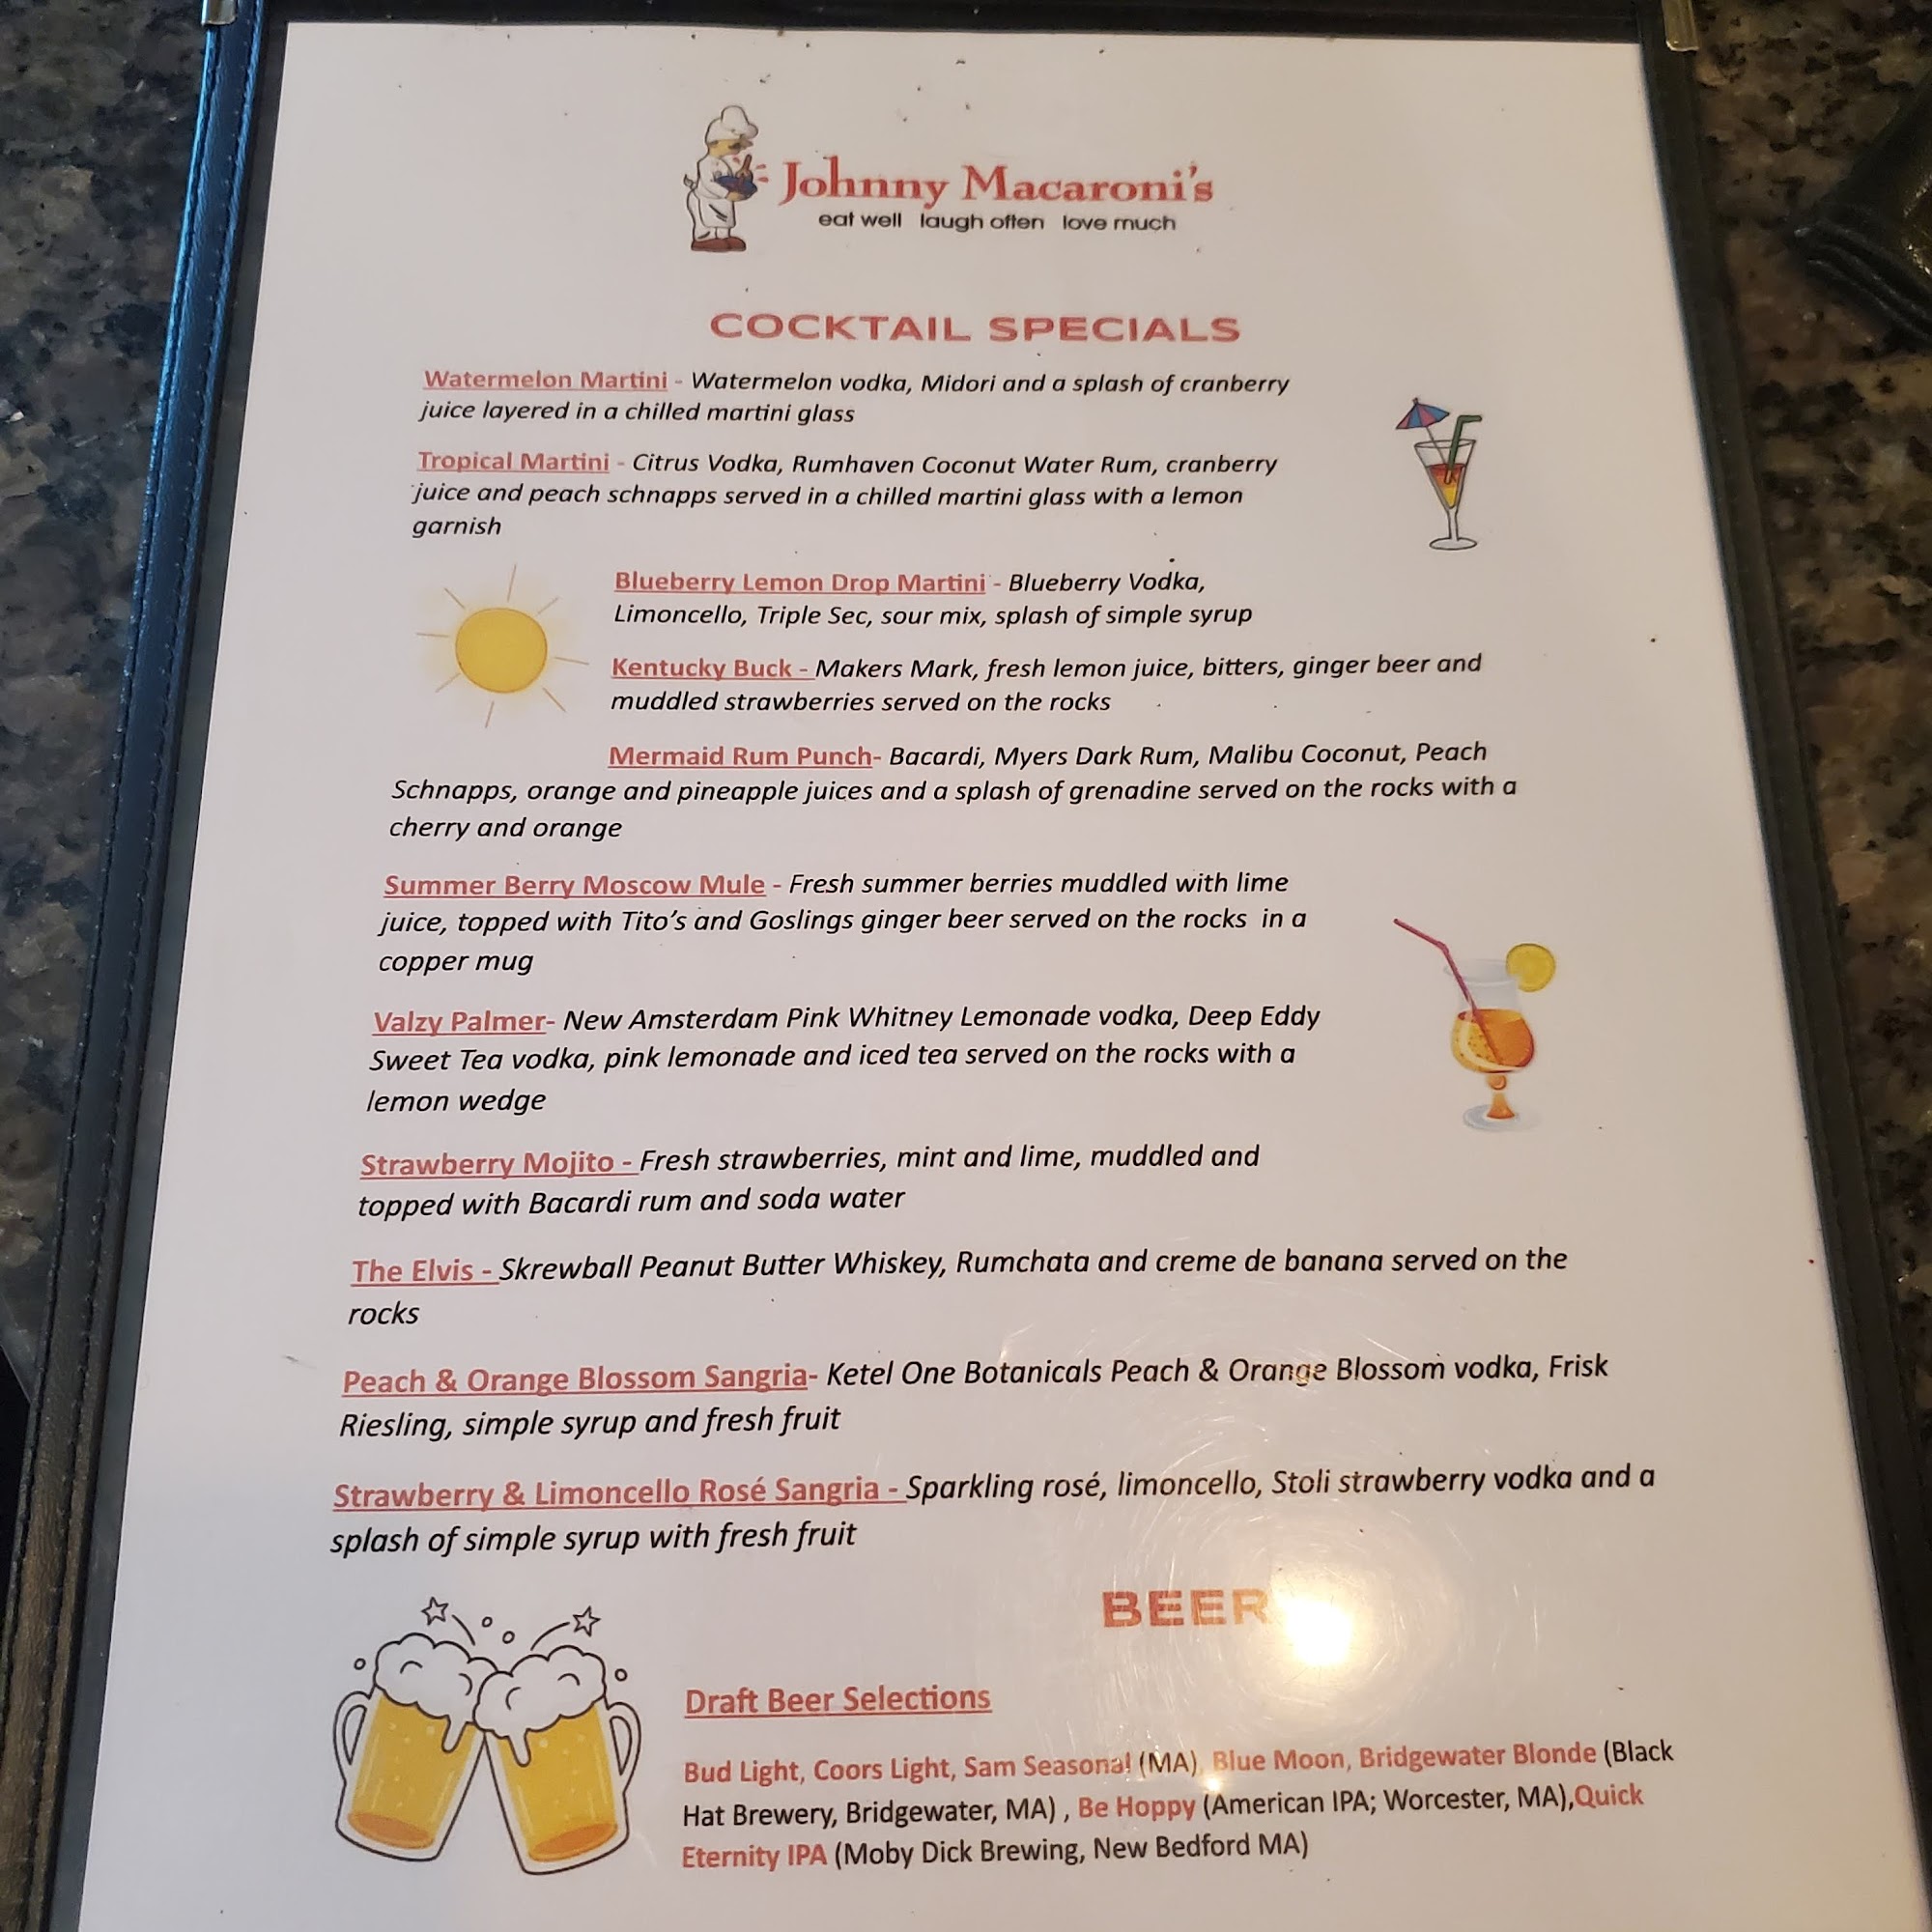 Johnny Macaroni's
eat well laugh often love much
COCKTAIL SPECIALS
Watermelon Martini - Watermelon vodka, Midori and a splash of cranberry
juice layered in a chilled martini glass
Tropical Martini - Citrus Vodka, Rumhaven Coconut Water Rum, cranberry
juice and peach schnapps served in a chilled martini glass with a lemon
garnish
Blueberry Lemon Drop Martini - Blueberry Vodka,
Limoncello, Triple Sec, sour mix, splash of simple syrup
Kentucky Buck - Makers Mark, fresh lemon juice, bitters, ginger beer and
muddled strawberries served on the rocks
Mermaid Rum Punch- Bacardi, Myers Dark Rum, Malibu Coconut, Peach
Schnapps, orange and pineapple juices and a splash of grenadine served on the rocks with a
cherry and orange
Summer Berry Moscow Mule - Fresh summer berries muddled with lime
juice, topped with Tito's and Goslings ginger beer served on the rocks in a
copper mug
Valzy Palmer- New Amsterdam Pink Whitney Lemonade vodka, Deep Eddy
Sweet Tea vodka, pink lemonade and iced tea served on the rocks with a
lemon wedge
Strawberry Mojito - Fresh strawberries, mint and lime, muddled and
topped with Bacardi rum and soda water
The Elvis - Skrewball Peanut Butter Whiskey, Rumchata and creme de banana served on the
rocks
Peach & Orange Blossom Sangria- Ketel One Botanicals Peach & Orange Blossom vodka, Frisk
Riesling, simple syrup and fresh fruit
Strawberry & Limoncello Rosé Sangria - Sparkling rosé, limoncello, Stoli strawberry vodka and a
splash of simple syrup with fresh fruit
BEER
Draft Beer Selections
Bud Light, Coors Light, Sam Seasonal (MA), Blue Moon, Bridgewater Blonde (Black
Hat Brewery, Bridgewater, MA) , Be Hoppy (American IPA; Worcester, MA),Quick
Eternity IPA (Moby Dick Brewing, New Bedford MA)